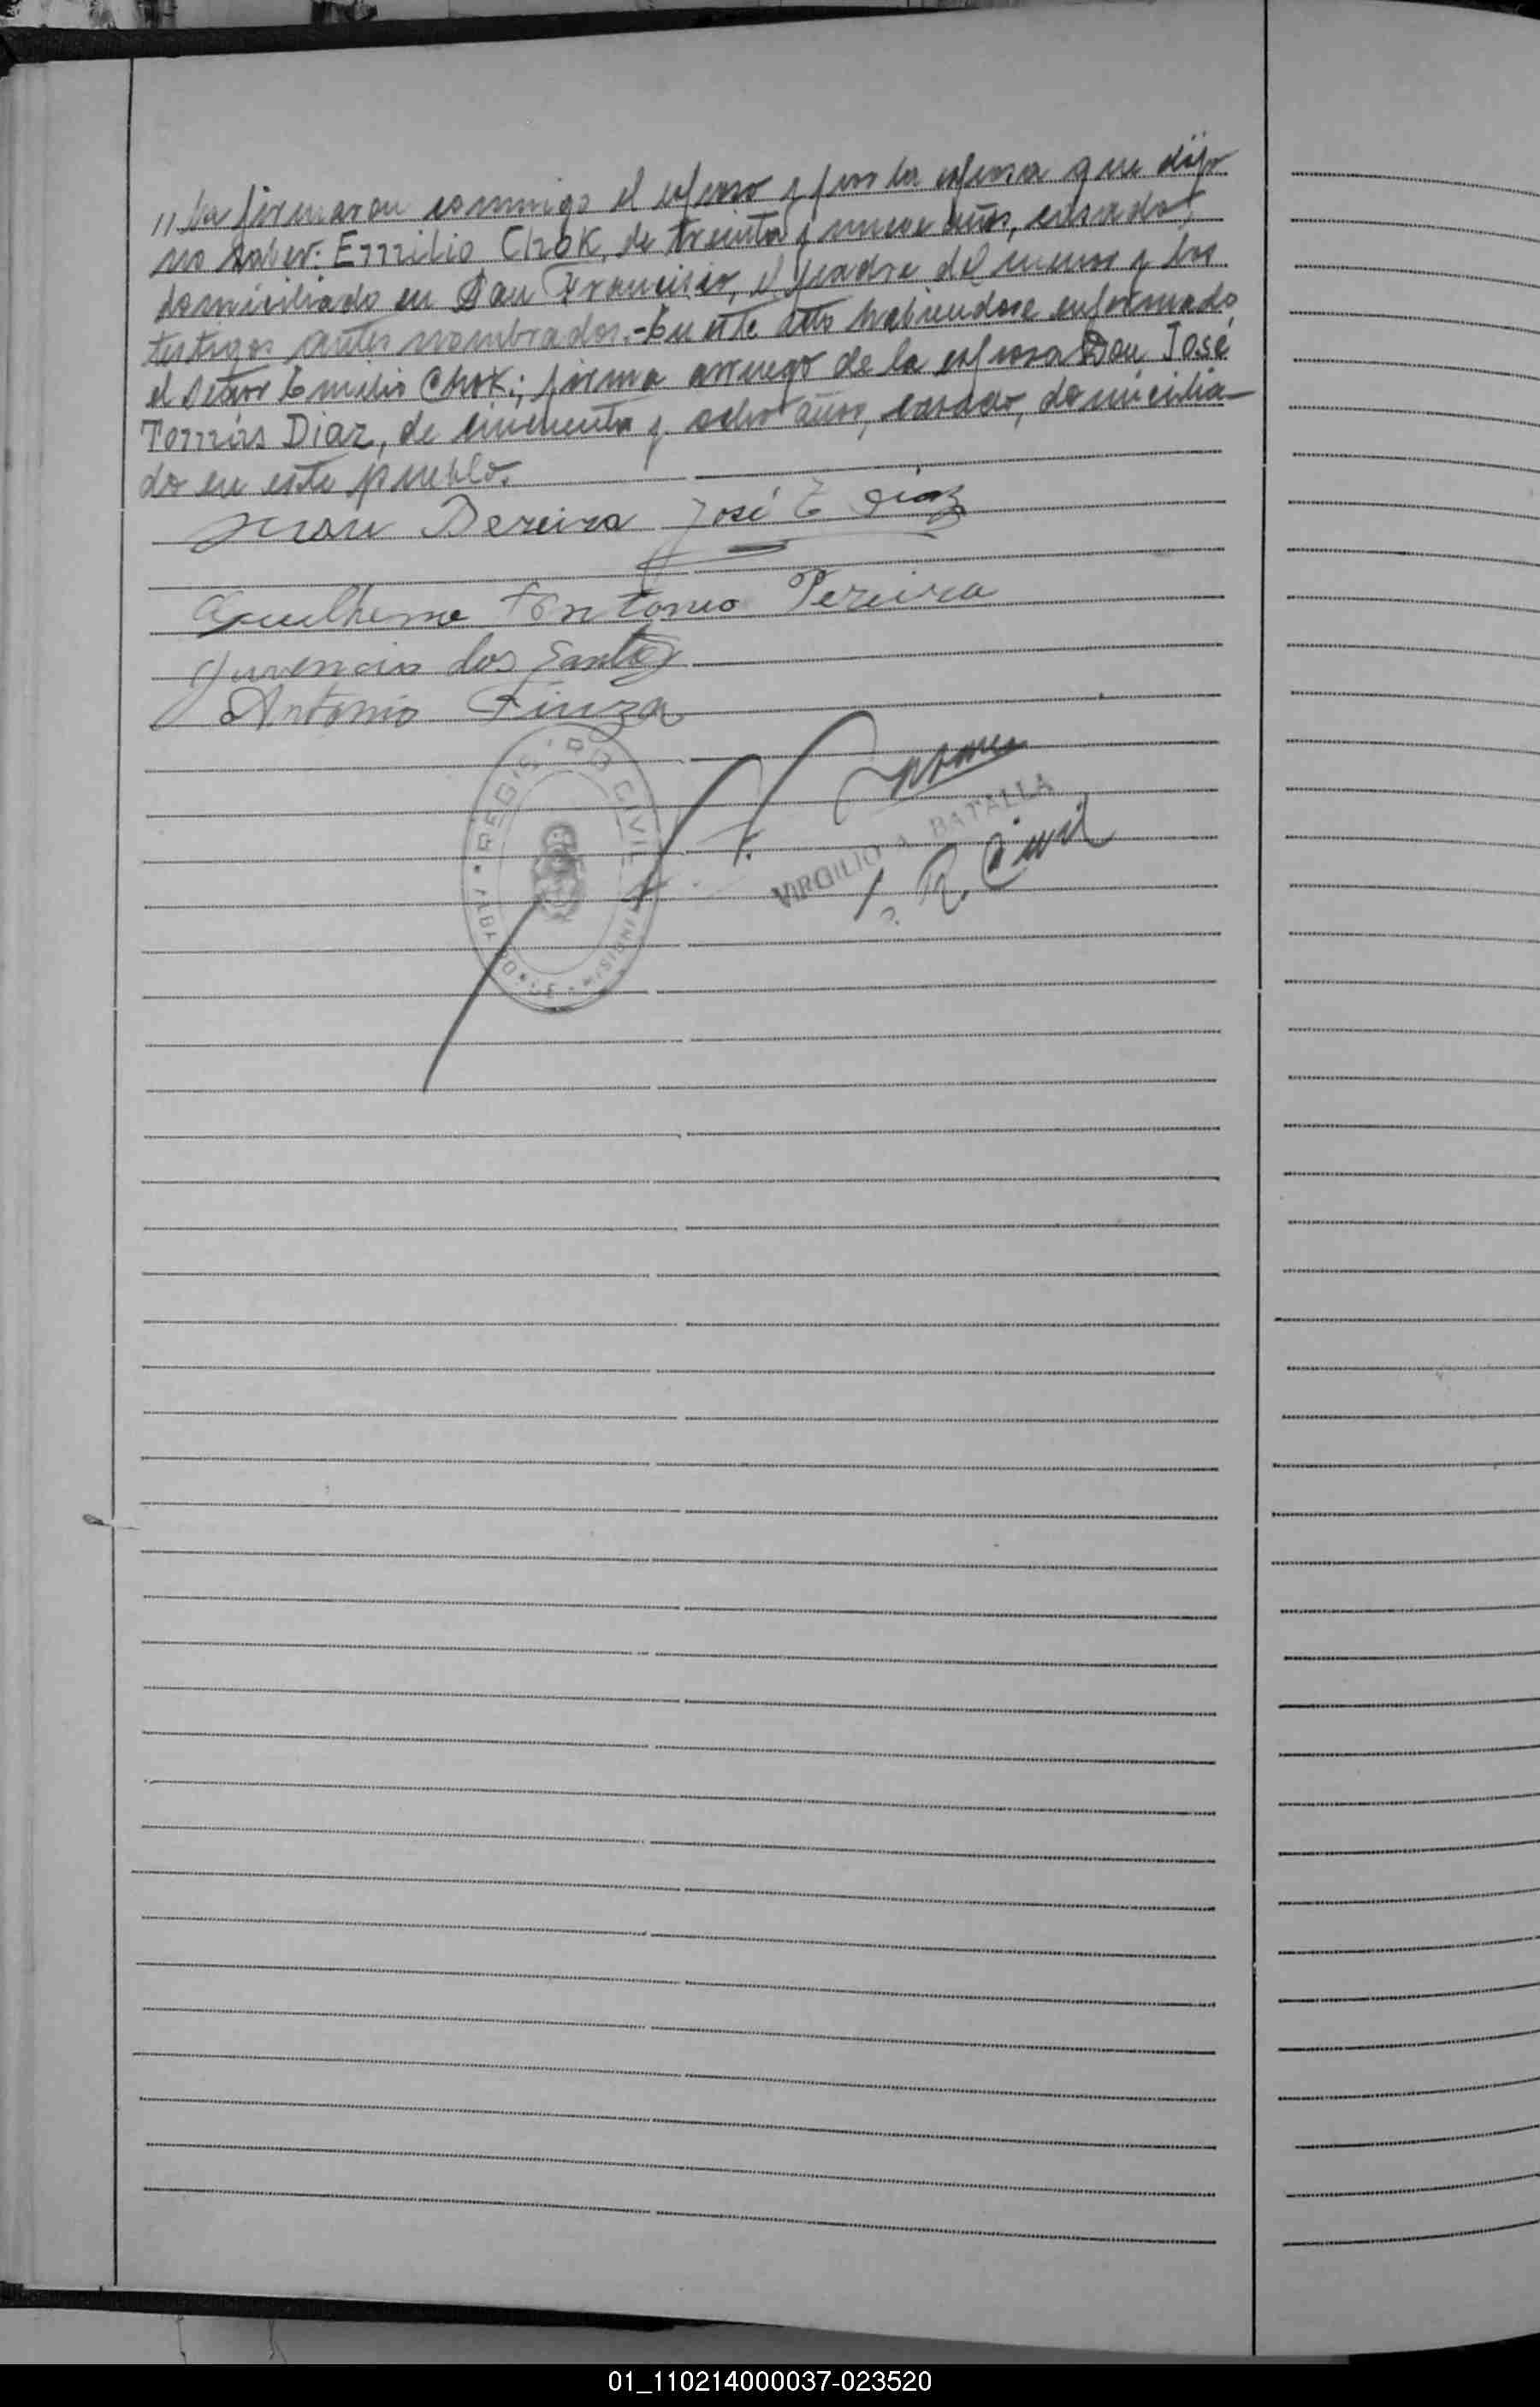 // la firmaron conmigo el esposo y por la esposa que dijo
no saber: Emilio Chok, de treinta y nueve años, casado,
domiciliado en San Francisco, el padre del menor y los
testigos antes nombrados.-En este acto habiendose enfermado
el señor Emilio Chok; firma arruego de la esposa Don José
Tomás Diaz, de cincuenta y ocho años, casado, domicilia-
do en este pueblo.
Juan Pereira José T Diaz
Guilherme Antonio Pereira
Juvencio dos Santos
Antonio Fiuza
REGISTRO CIVIL
MISIONES
VIRGILIO A. BATALLA
R. Civil
01_110214000037-023520